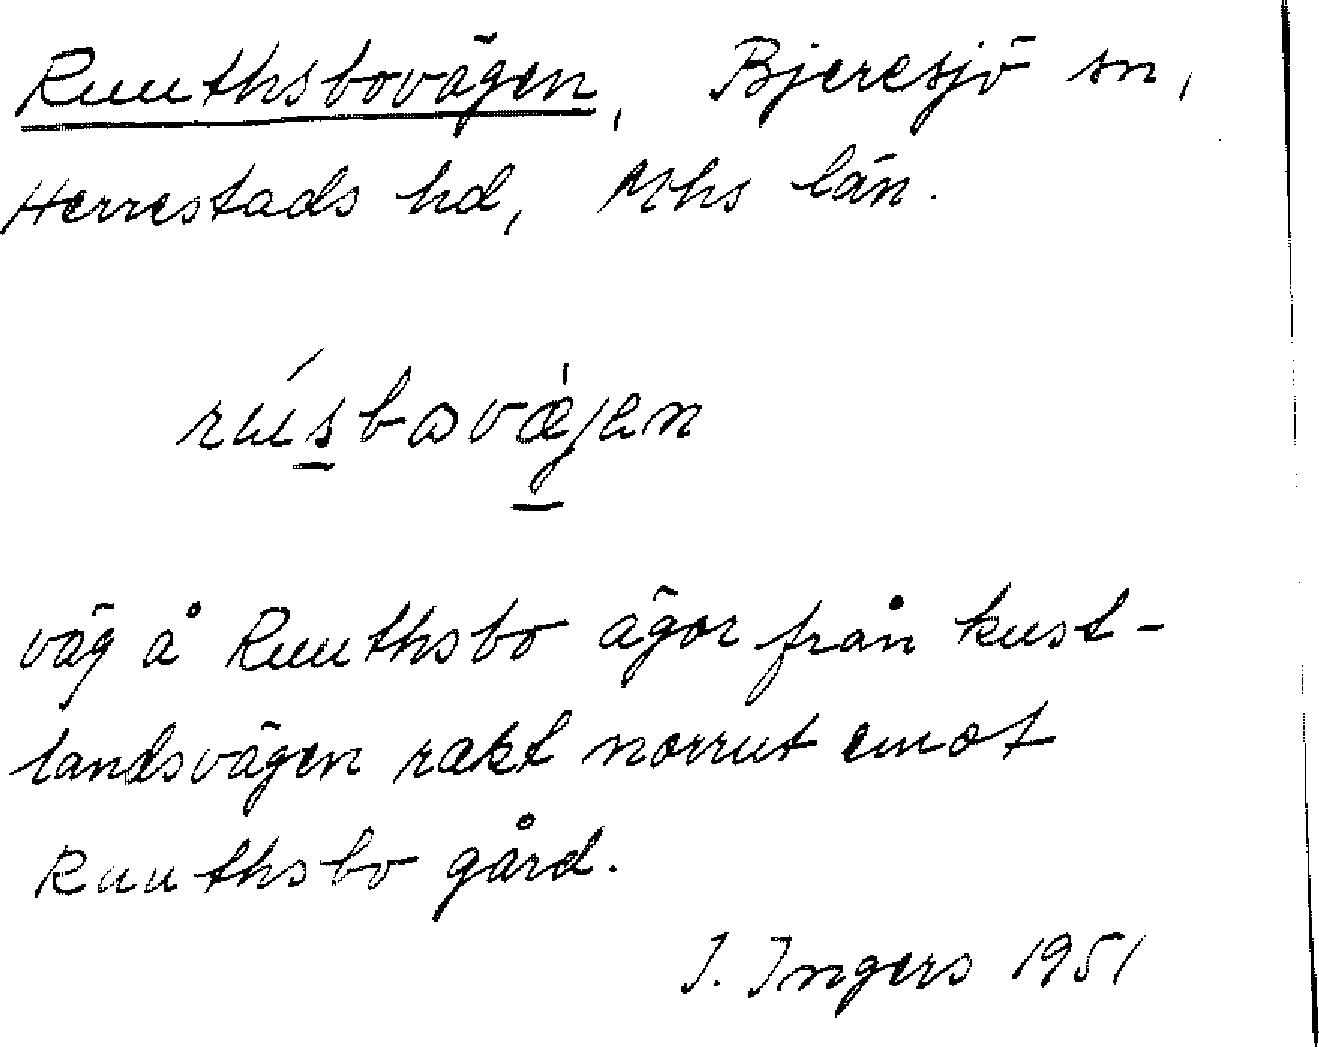 Ruuthsbovägen, Bjeresjö sn,
Herrestads hd, Mhs län.
rúsbavæ̀jen
väg å Ruuthsbo ägor från kust-
landsvägen rakt norrut emot
Ruuthsbo gård.
I. Ingers 1951